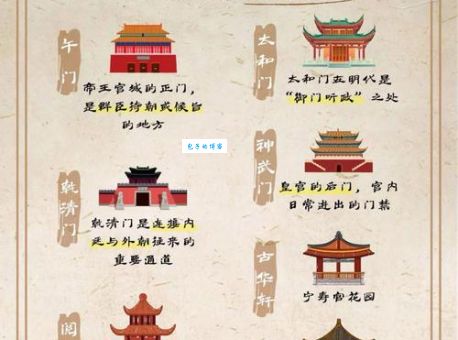 午门
帝王宫城的正门，
是群臣待朝或候旨
的地方
太和门
太和门在明代是
“御门听政”之处
包子的博客
神武门
皇宫的后门，宫内
日常进出的门禁
乾清门
乾清门是连接内
廷与外朝往来的
重要通道
古华轩
宁寿宫花园
阅